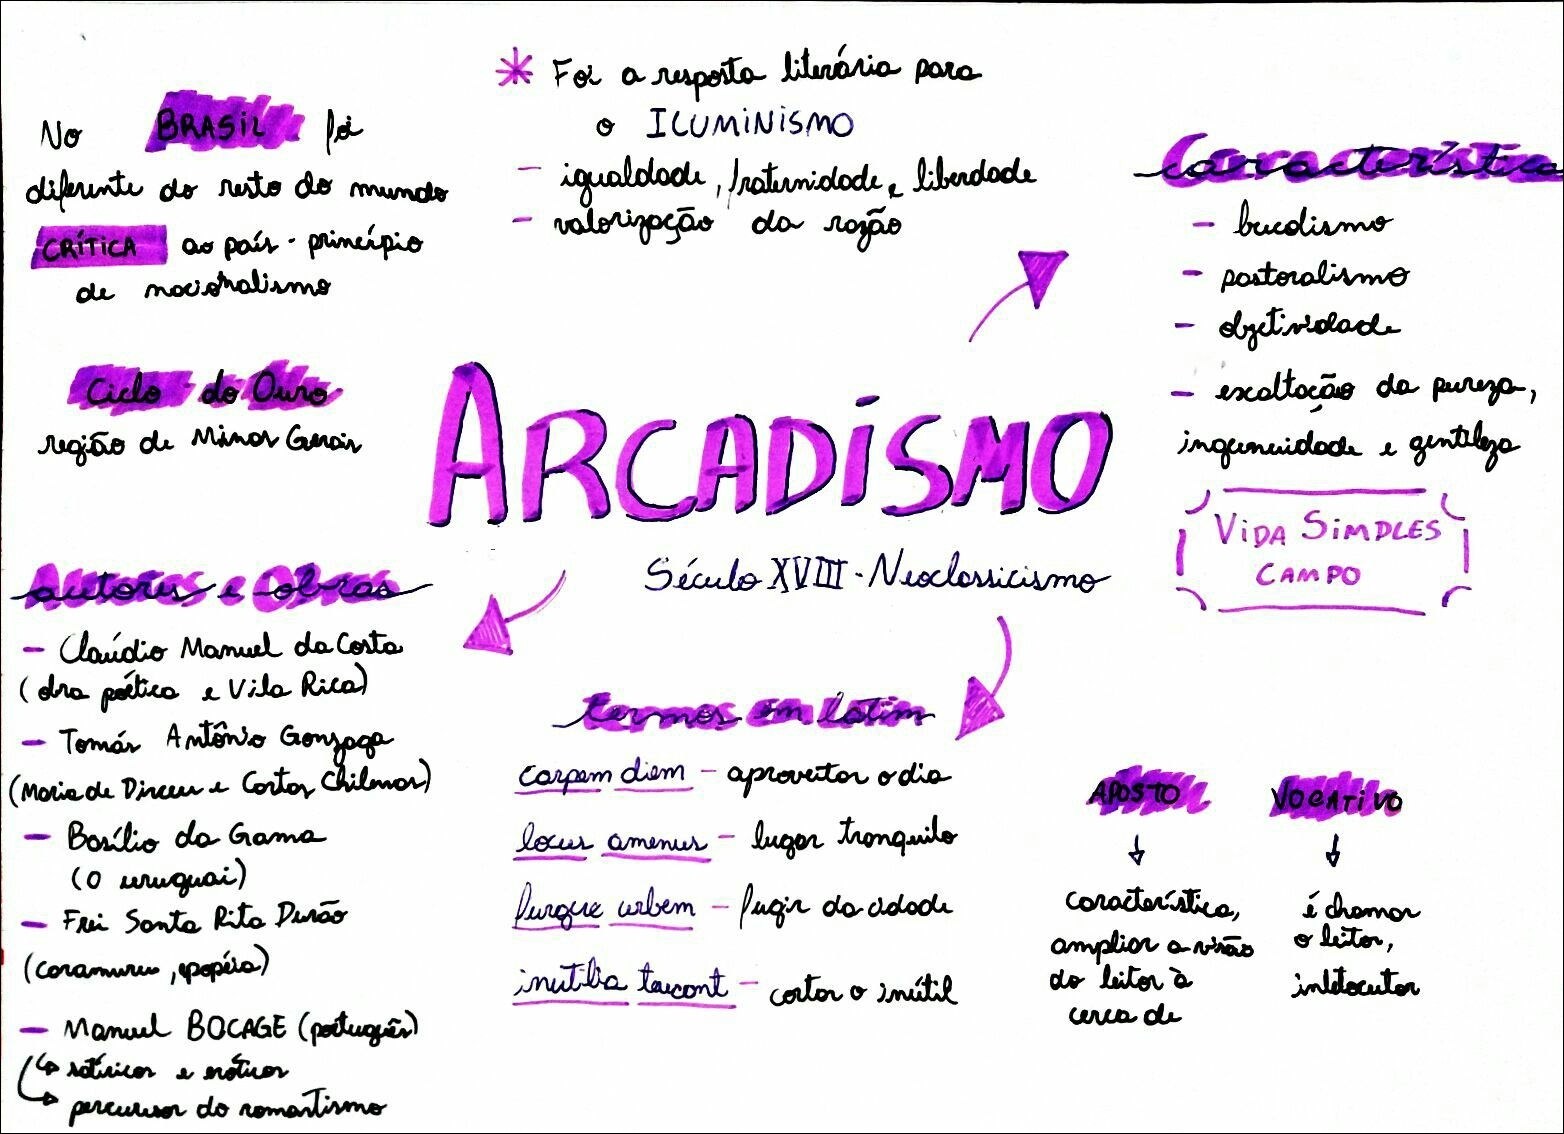 No BRASIL foi
diferente do resto do mundo
CRÍTICA ao país - princípio
de nacionalismo
Ciclo do Ouro
região de Minas Gerais
* Foi a resposta literária para
o ILUMINISMO
- igualdade, fraternidade e liberdade
- valorização da razão
característica
- bucolismo
- pastoralismo
- objetividade
- exaltação da pureza,
ingenuidade e gentileza
VIDA SIMPLES
CAMPO
ARCADISMO
Século XVIII - Neoclassicismo
autores e obras
- Claúdio Manuel da Costa
(obra poética e Vila Rica)
- Tomás Antônio Gonzaga
(Maria de Dirceu e Cartas Chilenas)
- Basílio da Gama
(O uruguai)
- Frei Santa Rita Durão
(caramuru, epopéia)
- Manuel BOCAGE (português)
satíricos e eróticos
percursor do romantismo
termos em latim
carpem diem - aproveitar o dia
locus amenus - lugar tranquilo
furgue urbem - fugir da cidade
inutilia taucant - cortar o inútil
APOSTO
característica,
ampliar a visão
do leitor à
cerca de
VOCATIVO
é chamar
o leitor,
intelocutor